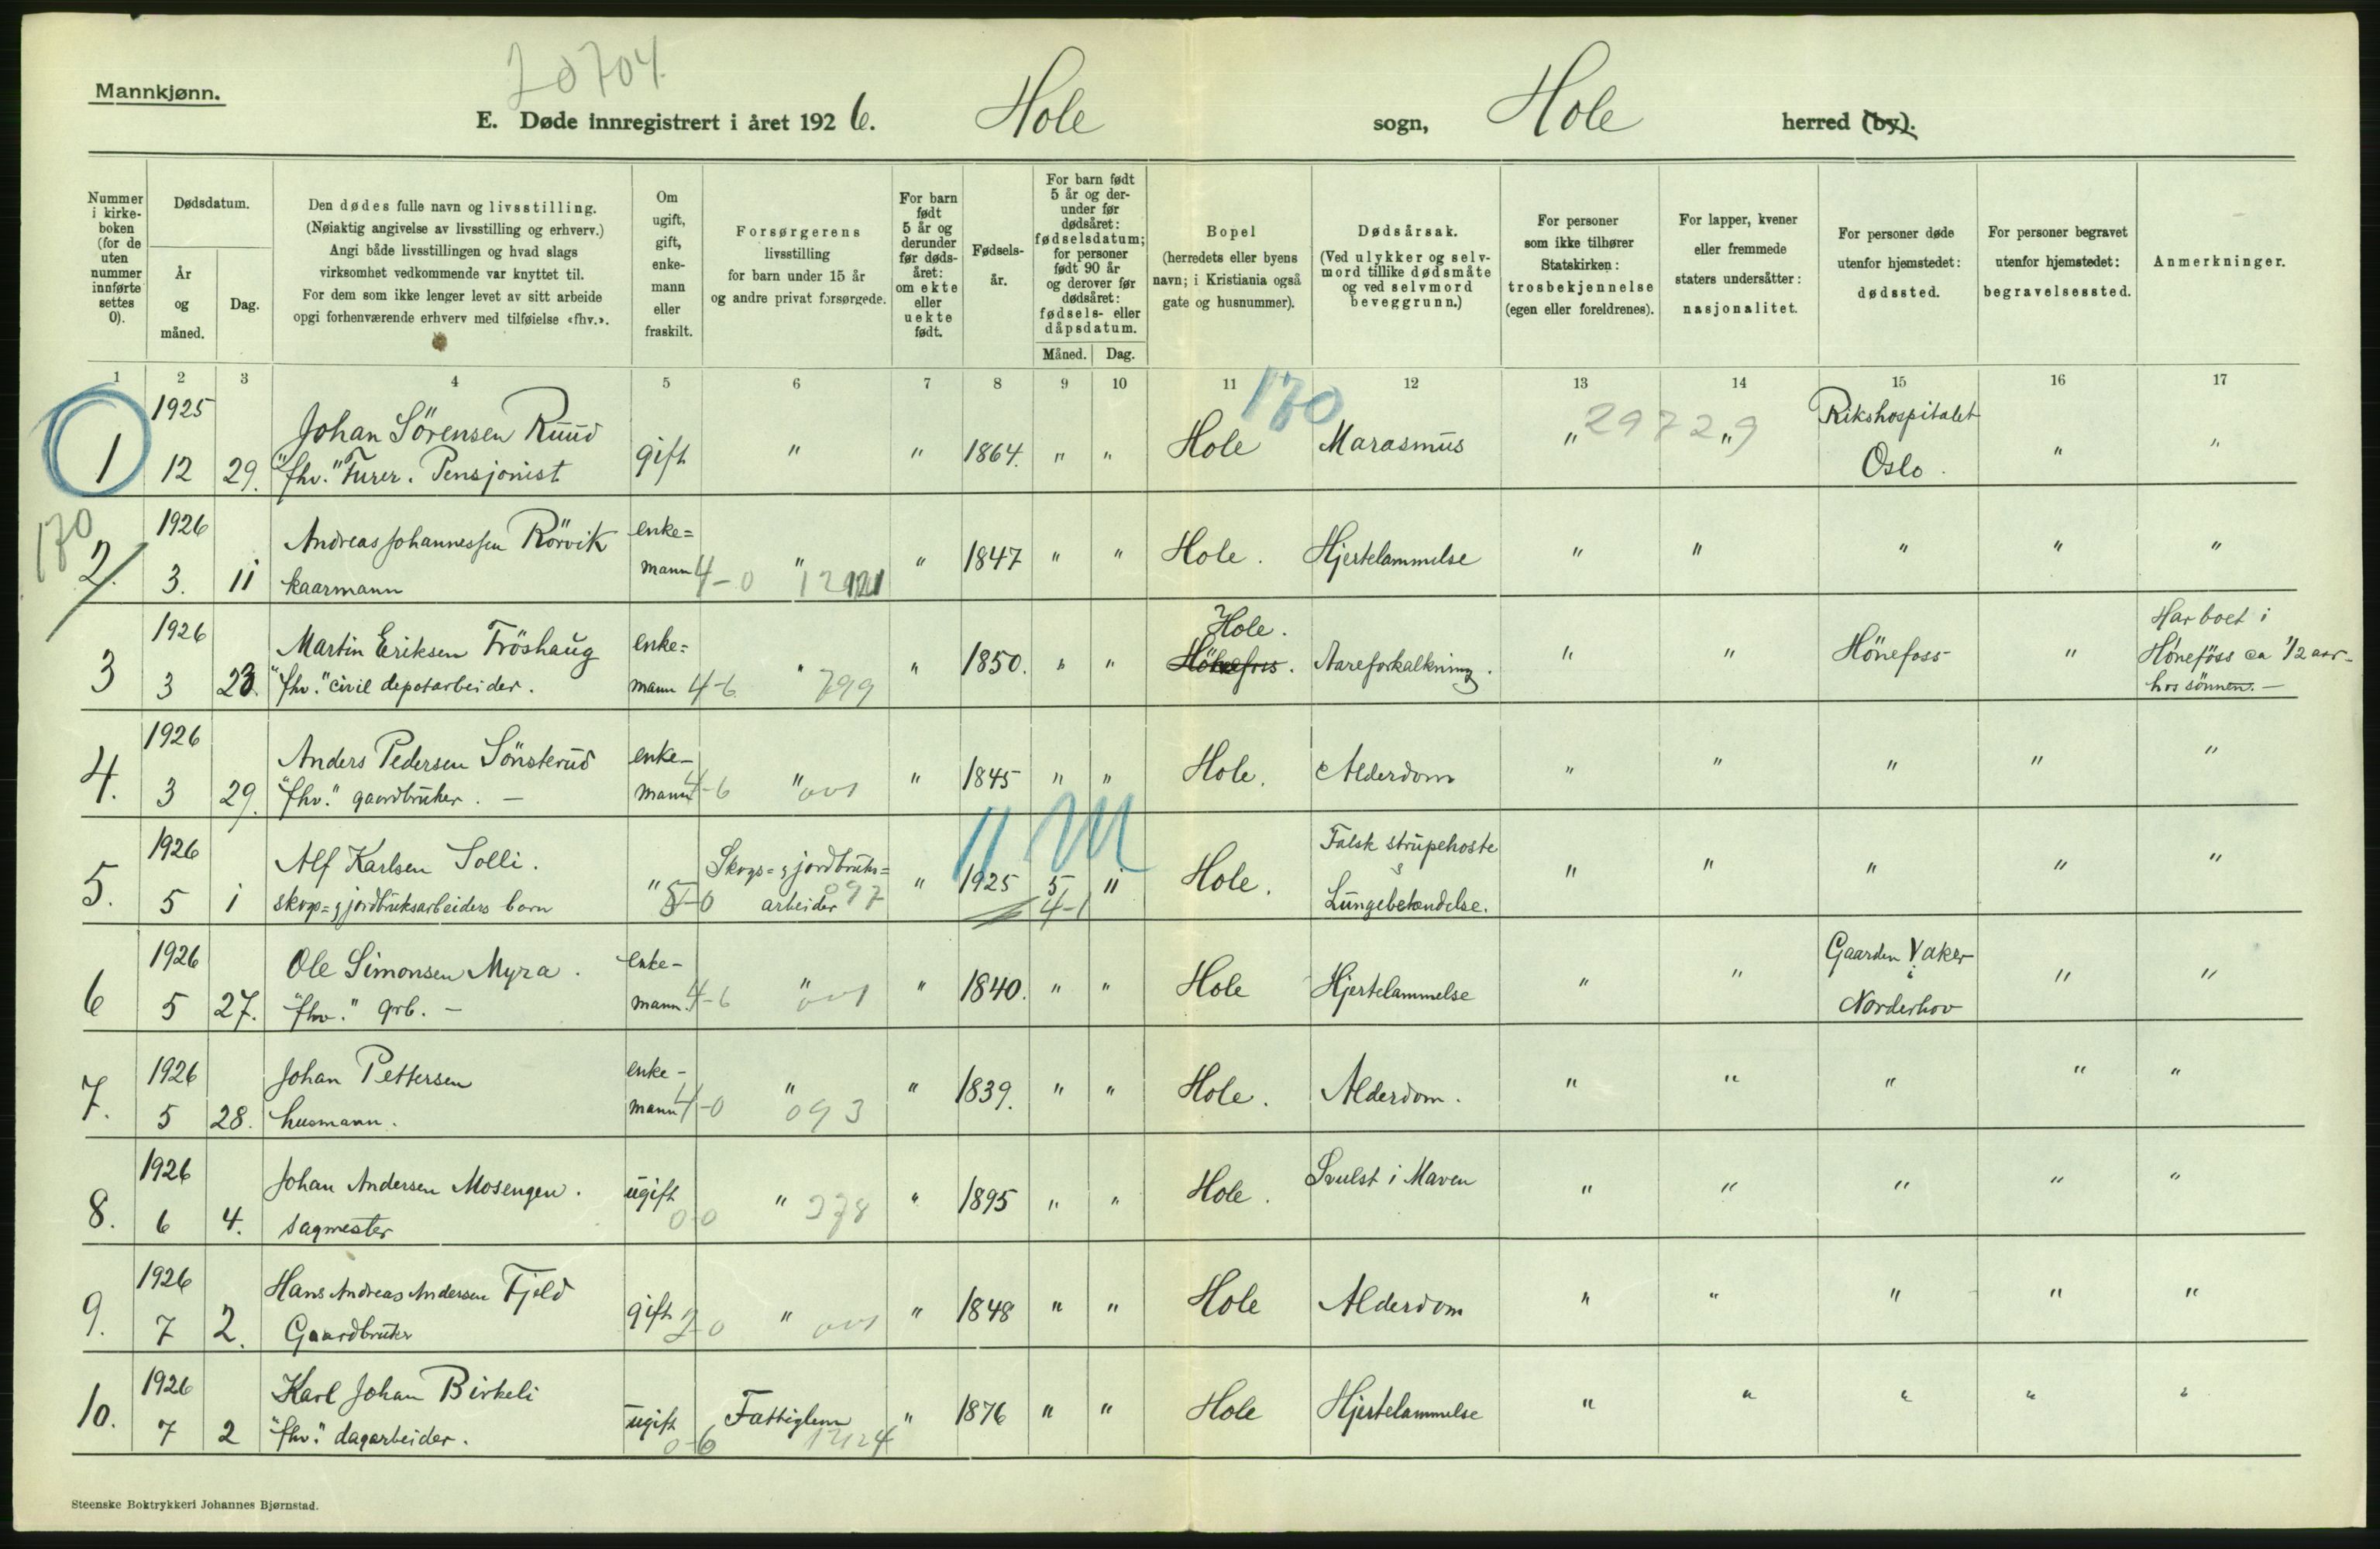 20704
Mannkjønn.
E. Døde innregistrert i året 1926. Hole sogn, Hole herred (by).
Nummer i kirke-boken (for de uten nummer innførte settes 0).
Dødsdatum.
År og måned.
Dag.
Den dødes fulle navn og livsstilling.
(Nøiaktig angivelse av livsstilling og erhverv.)
Angi både livsstillingen og hvad slags
virksomhet vedkommende var knyttet til.
For dem som ikke lenger levet av sitt arbeide
opgi forhenværende erhverv med tilføielse «fhv.».
Om ugift, gift, enke-mann eller fraskilt.
Forsørgerens
livsstilling
for barn under 15 år
og andre privat forsørgede.
For barn født 5 år og derunder før døds-året: om ekte eller uekte født.
Fødsels-år.
For barn født 5 år og der-under før dødsåret: fødselsdatum; for personer født 90 år og derover før dødsåret: fødsels- eller dåpsdatum.
Måned. Dag.
Bopel
(herredets eller byens
navn; i Kristiania også
gate og husnummer).
Dødsårsak.
(Ved ulykker og selv-
mord tillike dødsmåte
og ved selvmord
beveggrunn.)
For personer
som ikke tilhører
Statskirken:
trosbekjennelse
(egen eller foreldrenes).
For lapper, kvener
eller fremmede
staters undersåtter:
nasjonalitet.
For personer døde
utenfor hjemstedet:
dødssted.
For personer begravet
utenfor hjemstedet:
begravelsessted.
Anmerkninger.
1 2 3 4 5 6 7 8 9 10 11 12 13 14 15 16 17
170
1925 Johan Sörensen Ruud Rikshospitalet
1 12 29. "fhv." Furer. Pensjonist gift " " 1864. " " Hole Marasmus " 29729 " Oslo. " "
170
1926 Andreas Johannessen Rörvik enke=
2. 3. 11 kaarmann mann 4-0 " 12121 " 1847 " " Hole. Hjertelammelse " " " " "
1926 Martin Eriksen Fröshaug enke= Hole. Har boet i
3 3 23. "fhv." civil depotarbeider. mann 4-6 " 799 " 1850. " " Hönefoss. Aareforkalkning. " " Hönefoss " Hönefoss ca 1/2 aar-
hos sönnen. -
1926 Anders Pedersen Sönsterud enke-
4. 3 29. "fhv." gaardbruker. - mann 4-6 " 001 " 1845 " " Hole. Alderdom " " " " "
11 M
1926 Alf Karlsen Solli. Skogs= & jordbruks= Falsk strupehoste
5. 5 1 skogs= & jordbruksarbeiders barn " 5-0 arbeider 097 " 1925 5 11 Hole. & " " " " "
4-1 Lungebetendelse.
1926 Ole Simonsen Myra. enke- Gaarden Vaker
6 5 27. "fhv." grb. - mann. 4-6 " 001 " 1840. " " Hole Hjertelammelse " " i " "
Norderhov
1926 Johan Pettersen enke-
7. 5 28. husmann. mann 4-0 " 093 " 1839. " " Hole. Alderdom. " " " " "
1926 Johan Andersen Mosengen. Svulst i Maven
8. 6 4. sagmester ugift 0-0 " 278 " 1895 " " Hole. " " " " "
1926 Hans Andreas Andersen Fjeld
9. 7 2. Gaardbruker gift 2-0 " 001 " 1848 " " Hole Alderdom " " " " "
1926 Karl Johan Birkeli
10. 7 2 "fhv." dagarbeider. ugift 0-6 Fattiglem 12124 " 1876 " " Hole Hjertelammelse " " " " "
Steenske Boktrykkeri Johannes Bjørnstad.